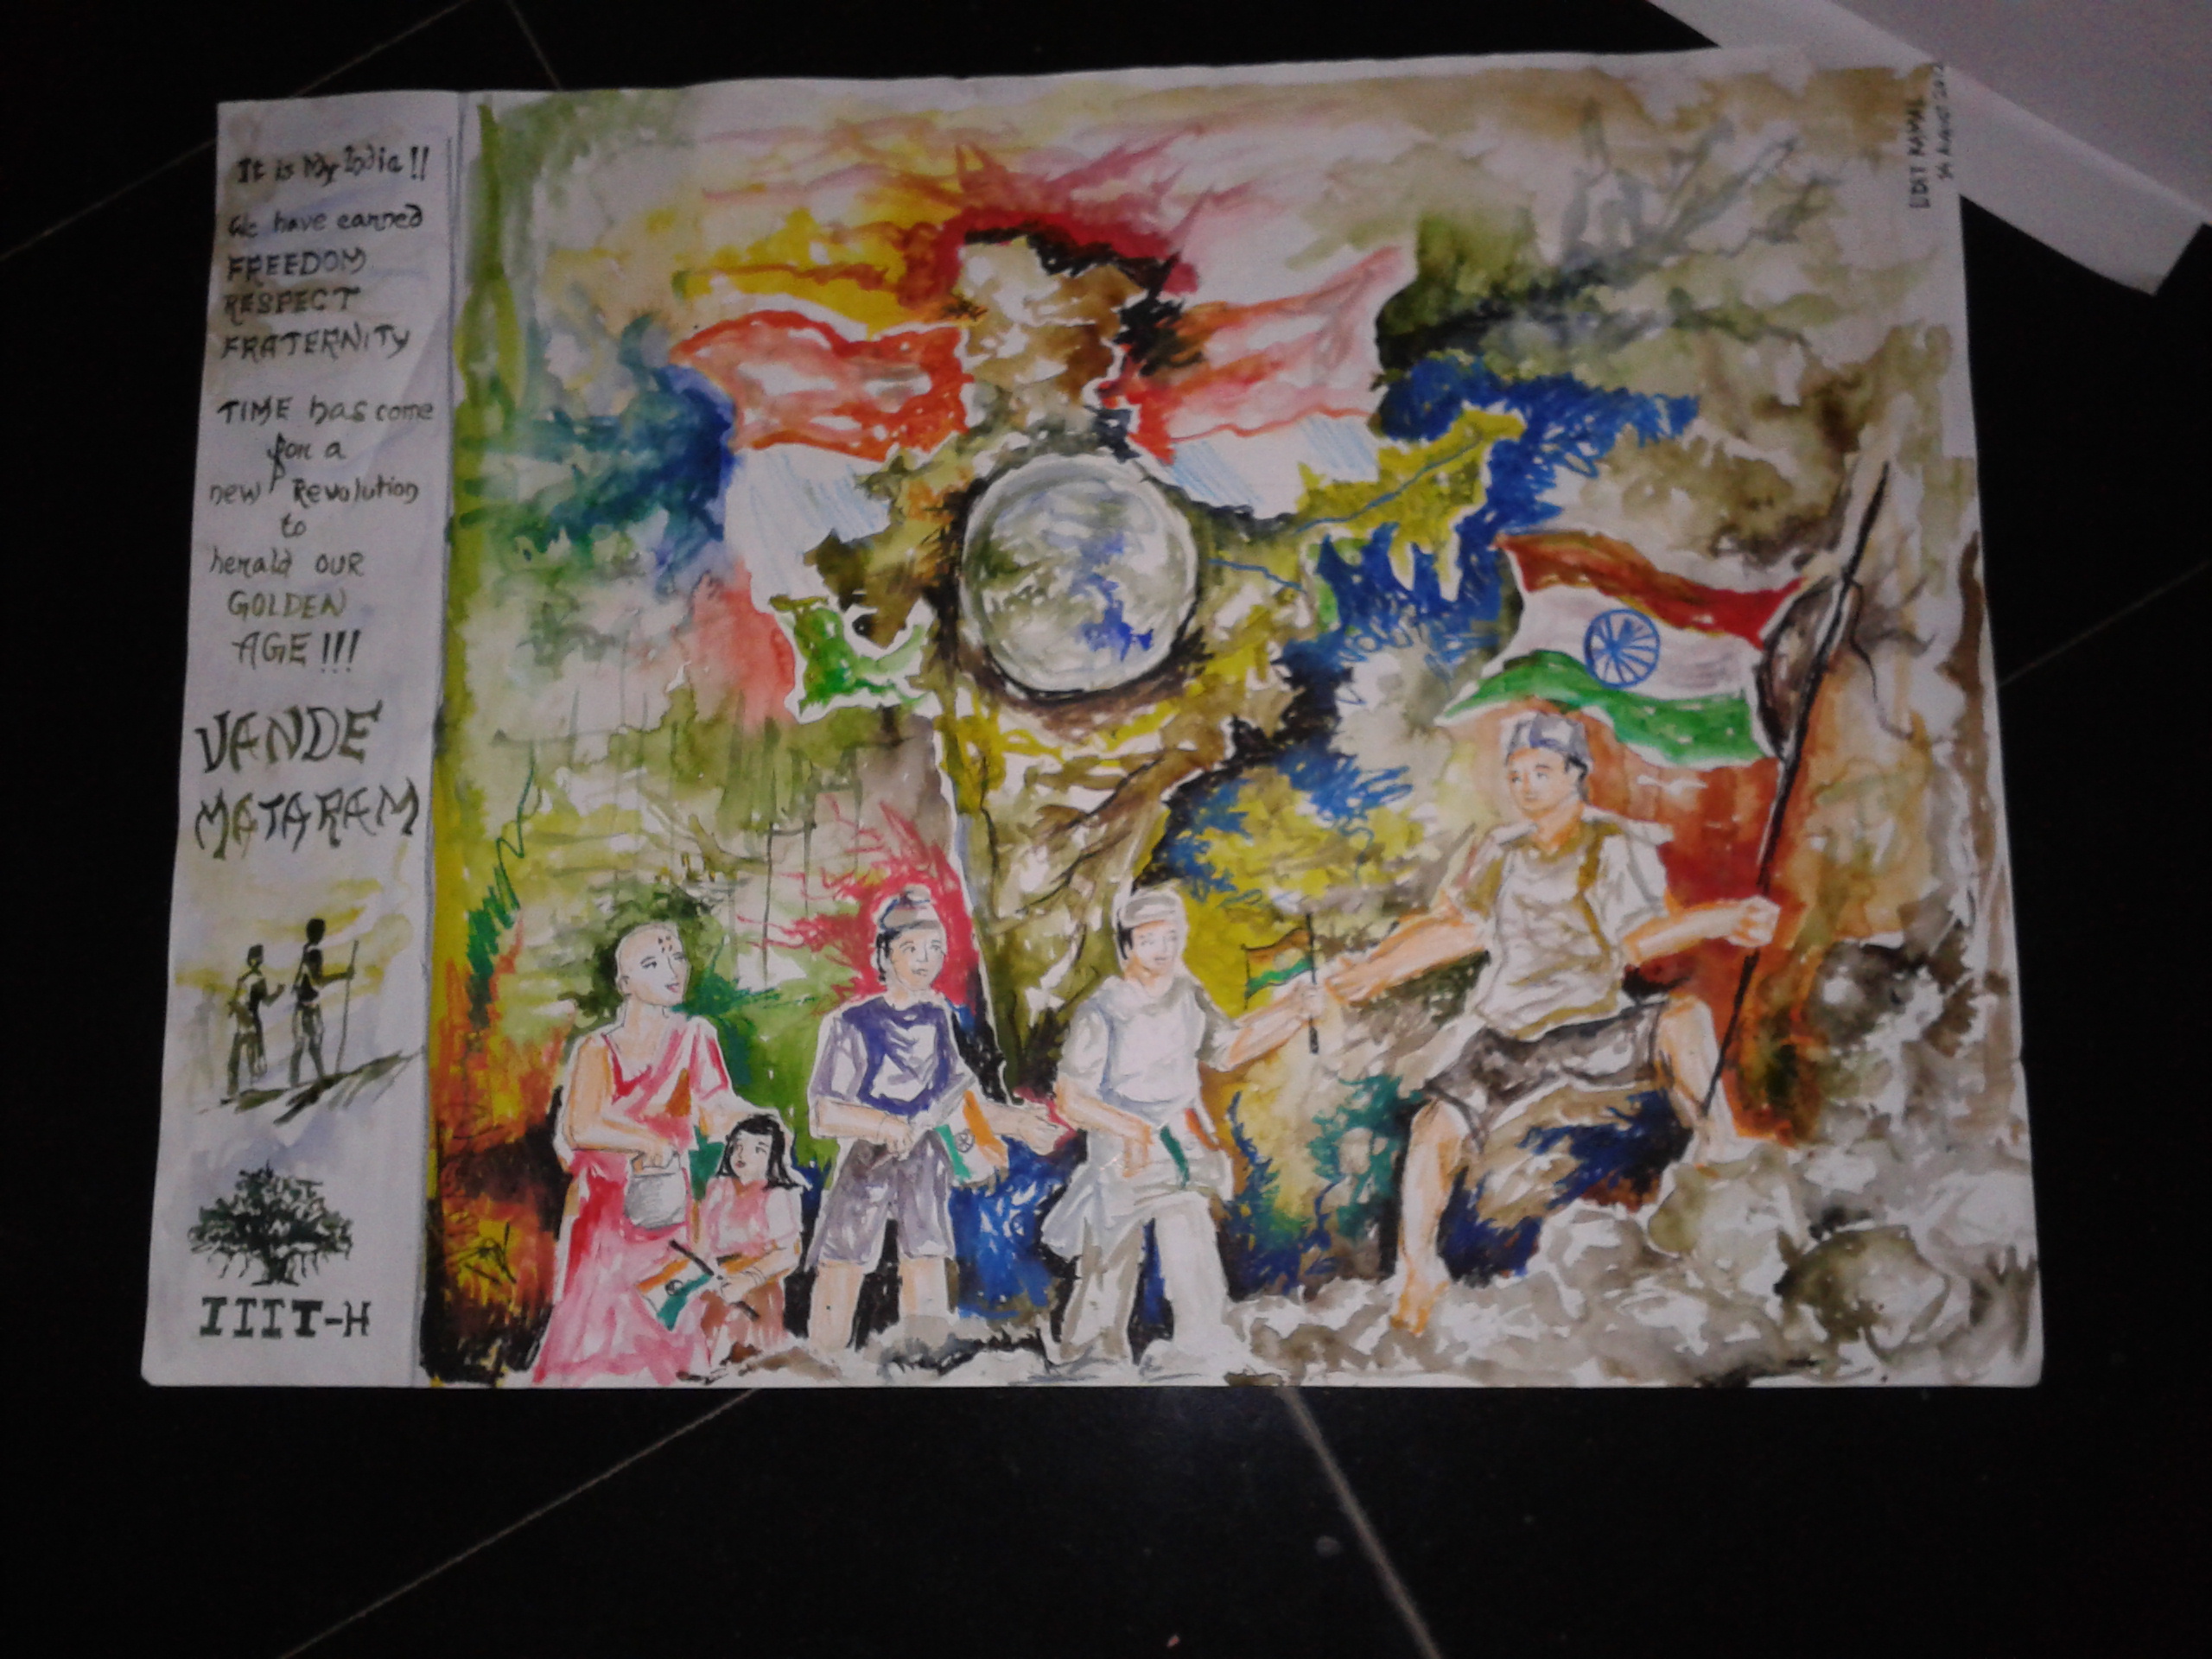 It is My India !!
We have earned
FREEDOM
RESPECT
FRATERNITY
TIME has come
for a
new Revolution
to
herald OUR
GOLDEN
AGE !!!
VANDE
MATARAM
IIIT-H
UDIT KAMAL
14 AUGUST